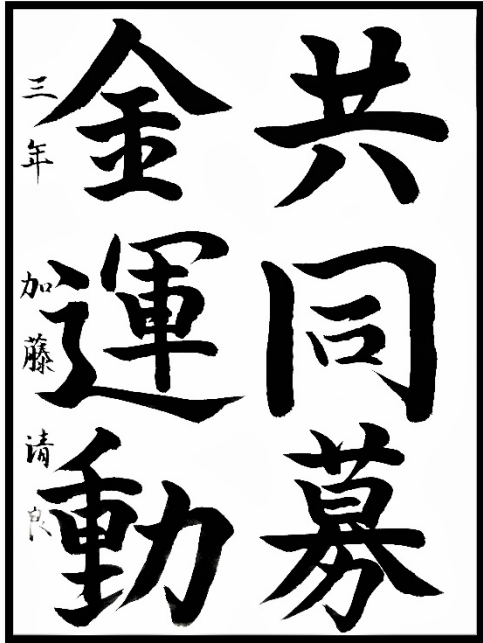 共同募
金運動
三年 加藤清良